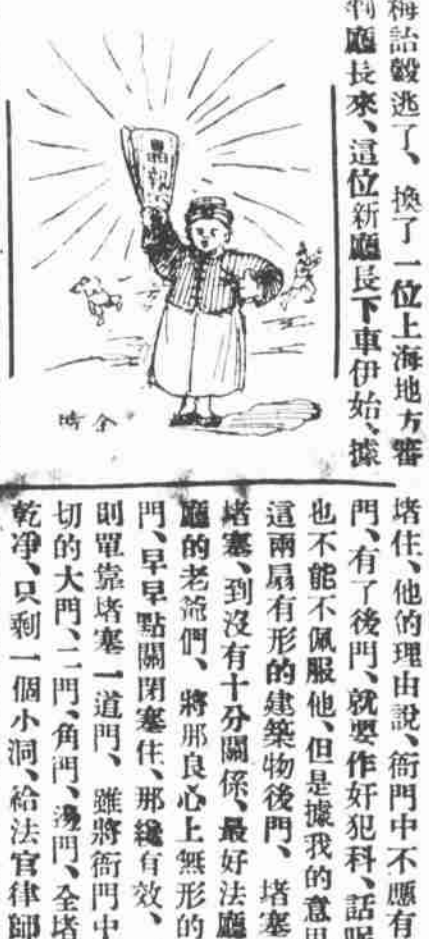 梅詒穀逃了、換了一位上海地方審
判廳長來、這位新廳長下車伊始、據
晶報
堵住、他的理由說、衙門中不應有
門、有了後門、就要作奸犯科、話
也不能不佩服他、但是據我的意思
這兩扇有形的建築物後門、堵塞
堵塞、到沒有十分關係、最好法廳
廳的老爺們、將那良心上無形的
門、早早點關閉塞住、那纔有效、
則單靠堵塞一道門、雖將衙門中
切的大門、二門、角門、湯門、全堵
乾净、只剩一個小洞、給法官律師